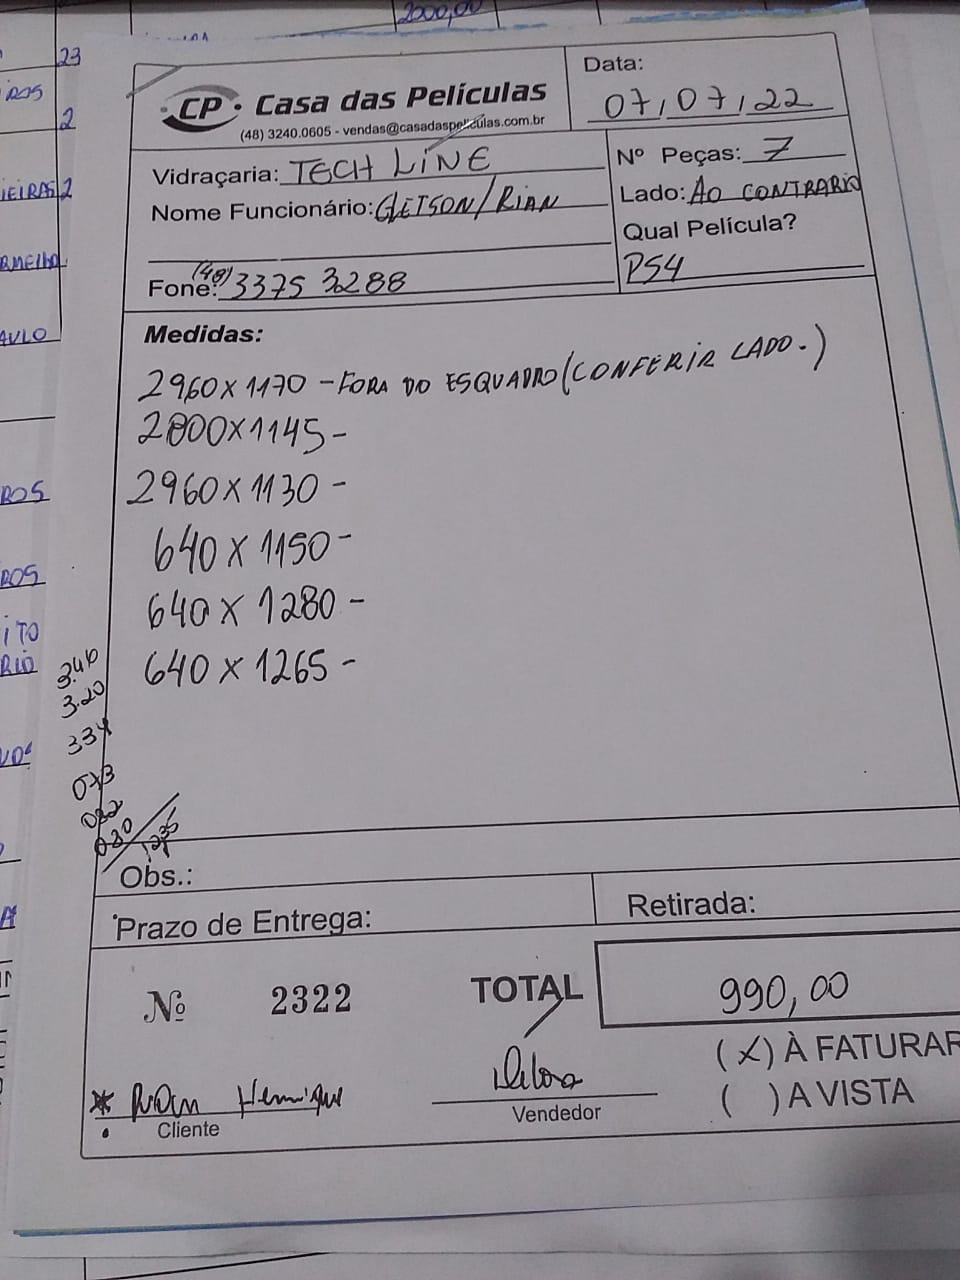 2000,00
23
ROS
2
IEIRAS 2
RMELHO
AULO
ROS
ROS
ITO
RIO
CP Casa das Películas
(48) 3240.0605 - vendas@casadaspeliculas.com.br
Data:
07/07/22
Vidraçaria: TECH LINE
Nº Peças: 7
Nome Funcionário: GLEISON/RIAN
Lado: AO CONTRARIO
Qual Película?
Fone: (48) 3375 3288
PS4
Medidas:
2960 x 1170 - FORA DO ESQUADRO (CONFERIR LADO.)
2800 x 1145 -
2960 x 1130 -
640 x 1150 -
640 x 1280 -
640 x 1265 -
3.20
334
Obs.:
Prazo de Entrega:
Retirada:
Nº 2322
TOTAL
990,00
(X) À FATURAR
( ) A VISTA
* Rian Henrique
Cliente
Vendedor